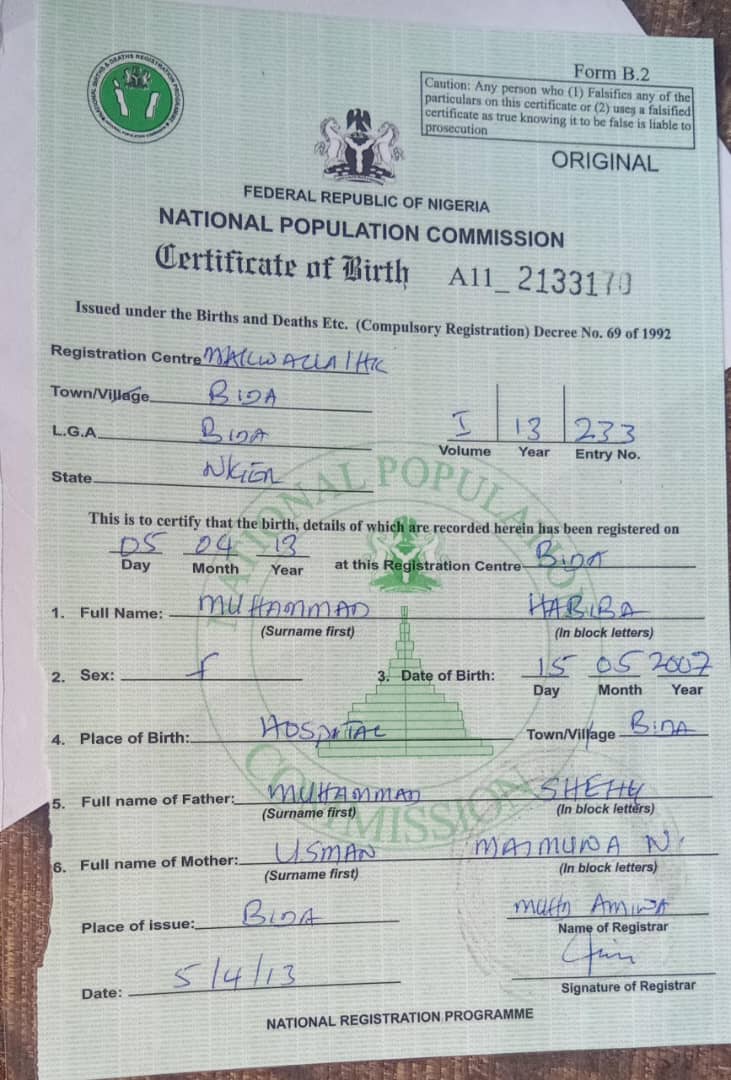 NATIONAL BIRTHS & DEATHS REGISTRATION PROGRAMME
Form B.2
Caution: Any person who (1) Falsifies any of the
particulars on this certificate or (2) uses a falsified
certificate as true knowing it to be false is liable to
prosecution
ORIGINAL
FEDERAL REPUBLIC OF NIGERIA
NATIONAL POPULATION COMMISSION
Certificate of Birth A11_2133170
Issued under the Births and Deaths Etc. (Compulsory Registration) Decree No. 69 of 1992
Registration Centre
Town/Village BIDA
L.G.A. BIDA
I 13 233
Volume Year Entry No.
State
NATIONAL POPULATION COMMISSION
This is to certify that the birth, details of which are recorded herein has been registered on
05 04 13 at this Registration Centre BIDA
Day Month Year
1. Full Name: MUHAMMAD HABIBA
(Surname first) (In block letters)
2. Sex: f 3. Date of Birth: 15 05 2007
Day Month Year
4. Place of Birth: HOSPITAL Town/Village BIDA
5. Full name of Father: MUHAMMAD SHEHU
(Surname first) (In block letters)
6. Full name of Mother: USMAN MAIMUNA N.
(Surname first) (In block letters)
Place of issue: BIDA AMINA
Name of Registrar
Date: 5/4/13
Signature of Registrar
NATIONAL REGISTRATION PROGRAMME